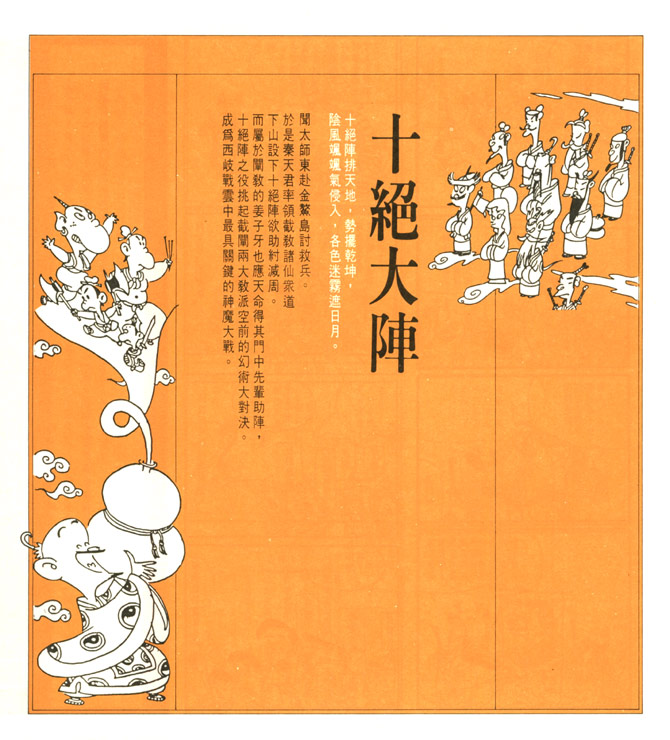 十絕大陣
十絕陣排天地，勢攪乾坤，
陰風颯颯氣侵入，各色迷霧遮日月。
聞太師東赴金鰲島討救兵。
於是秦天君率領截教諸仙衆道
下山設下十絕陣欲助紂減周。
而屬於闡教的姜子牙也應天命得其門中先輩助陣，
十絕陣之役挑起截闡兩大教派空前的幻術大對決。
成爲西岐戰雲中最具關鍵的神魔大戰。